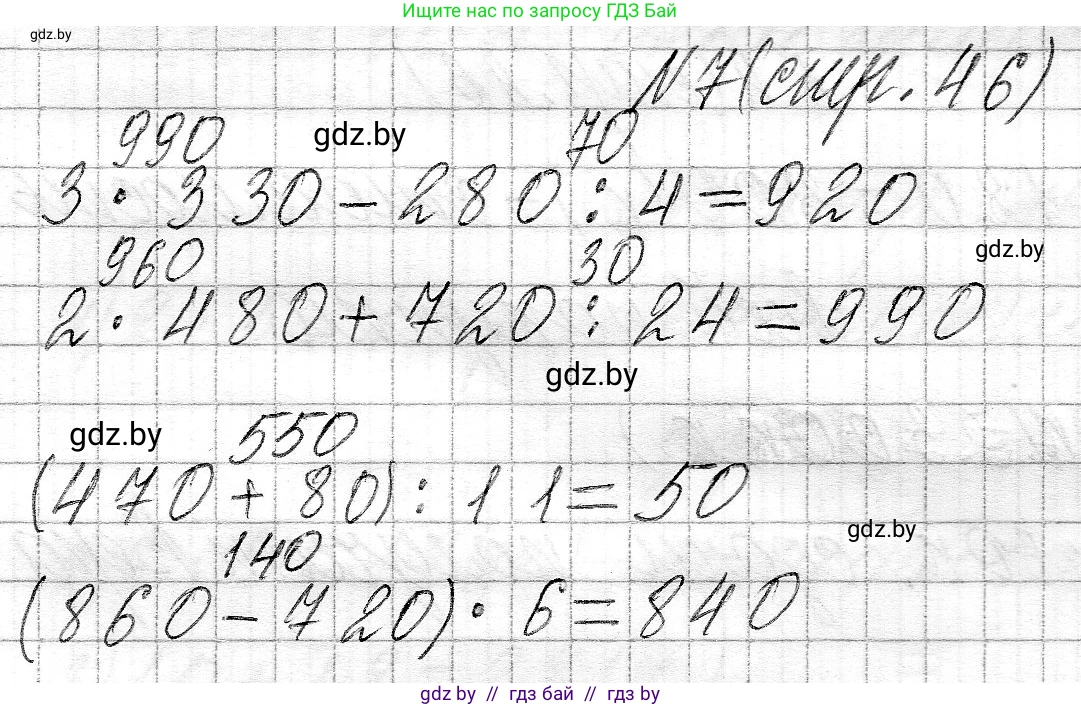 Ищите нас по запросу ГДЗ Бай
gdz.by
N7(стр. 46)
990 gdz.by 70
3 · 330 - 280 : 4 = 920
960 30 gdz.by
2 · 480 + 720 : 24 = 990
gdz.by
gdz.by 550
(470 + 80) : 11 = 50
gdz.by
140
(860 - 720) · 6 = 840
gdz.by // гдз бай // гдз by